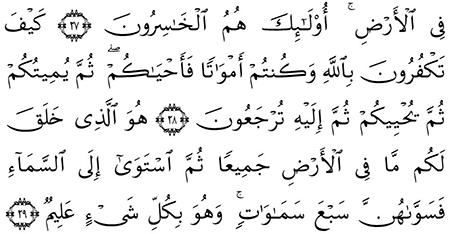 فِى ٱلْأَرْضِ ۚ أُو۟لَـٰٓئِكَ هُمُ ٱلْخَـٰسِرُونَ ﴿٢٧﴾ كَيْفَ
تَكْفُرُونَ بِٱللَّهِ وَكُنتُمْ أَمْوَٰتًا فَأَحْيَـٰكُمْ ۖ ثُمَّ يُمِيتُكُمْ
ثُمَّ يُحْيِيكُمْ ثُمَّ إِلَيْهِ تُرْجَعُونَ ﴿٢٨﴾ هُوَ ٱلَّذِى خَلَقَ
لَكُم مَّا فِى ٱلْأَرْضِ جَمِيعًا ثُمَّ ٱسْتَوَىٰٓ إِلَى ٱلسَّمَآءِ
فَسَوَّىٰهُنَّ سَبْعَ سَمَـٰوَٰتٍ ۚ وَهُوَ بِكُلِّ شَىْءٍ عَلِيمٌ ﴿٢٩﴾